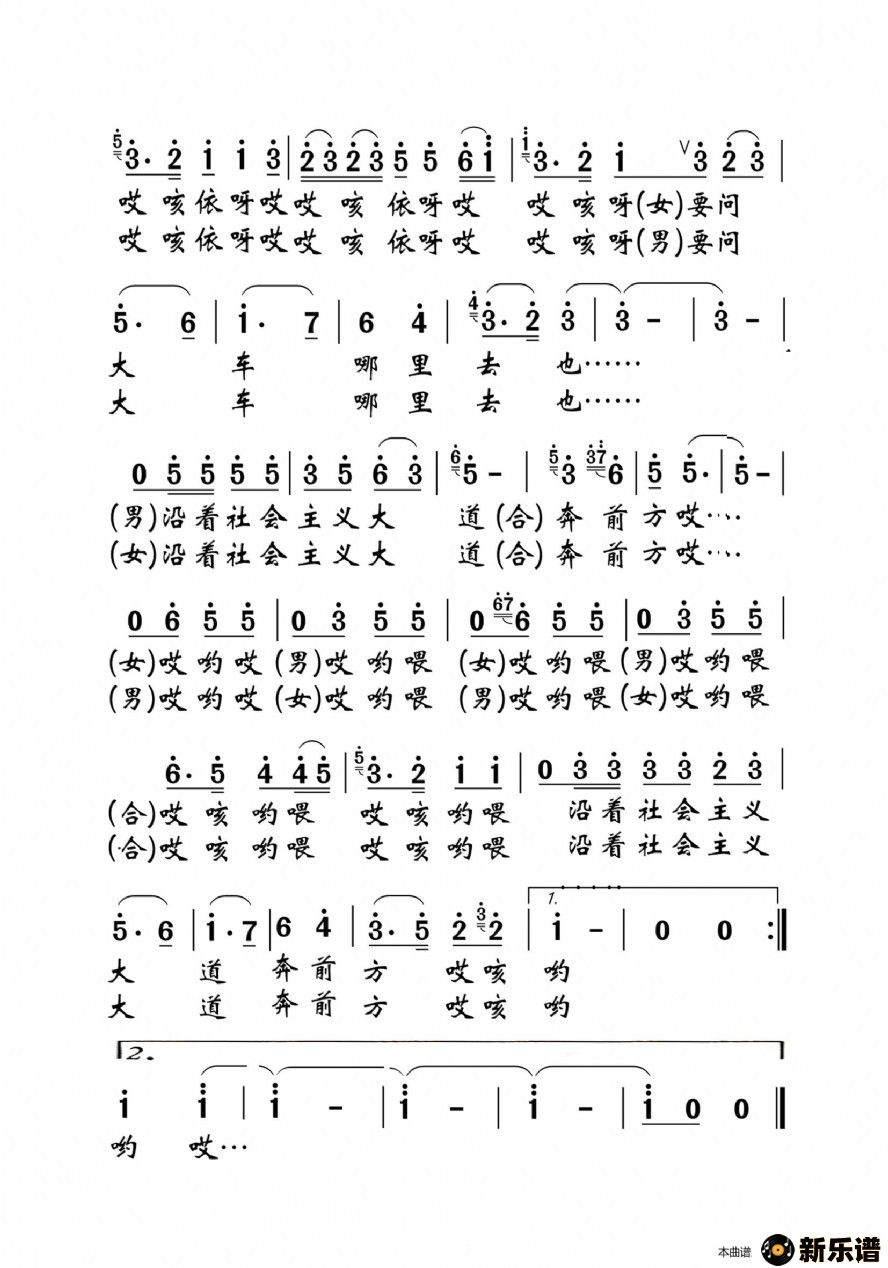 5 3· 2 1 1 3 | 2 3 2 3 5 5 6 i | i 3· 2 1 ∨ 3 2 3 |
哎咳依呀哎哎 咳 依呀哎 哎 咳 呀(女)要问
哎咳依呀哎哎 咳 依呀哎 哎 咳 呀(男)要问
5· 6 | 1· 7 | 6 4 | 4 3· 2 3 | 3 – | 3 – |
大 车 哪里 去 也……
大 车 哪里 去 也……
0 5 5 5 5 | 3 5 6 3 | 6 5 – | 5 3 37 6 | 5 5· | 5 – |
(男)沿着社会 主义大 道(合)奔 前 方 哎……
(女)沿着社会 主义大 道(合)奔 前 方 哎……
0 6 5 5 | 0 3 5 5 | 0 67 6 5 5 | 0 3 5 5 |
(女)哎哟哎 (男)哎哟喂 (女)哎哟喂 (男)哎哟喂
(男)哎哟哎 (女)哎哟喂 (男)哎哟喂 (女)哎哟喂
6· 5 4 4 5 | 5 3· 2 1 1 | 0 3 3 3 3 2 3 |
(合)哎 咳 哟喂 哎 咳哟喂 沿着社会主义
(合)哎 咳 哟喂 哎 咳哟喂 沿着社会主义
1.
5· 6 | 1· 7 | 6 4 | 3· 5 2 3 2 | 1 – | 0 0 :‖
大 道 奔前 方 哎咳 哟
大 道 奔前 方 哎咳 哟
2.
1 1 | 1 – | 1 – | 1 – | 1 0 0 ‖
哟 哎…
本曲谱 新乐谱